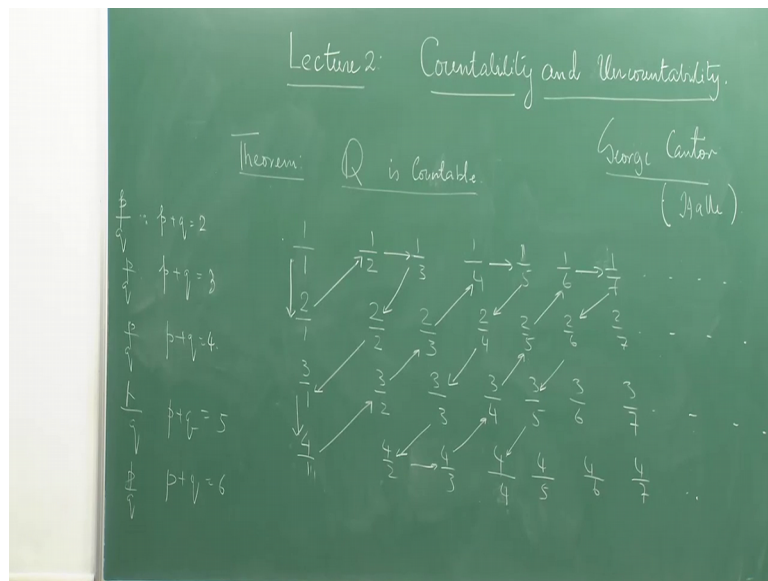 Lecture 2: Countability and Uncountability.
Theorem: Q is Countable.
George Cantor
(Halle).
p/q : p+q=2
p/q p+q=3
p/q p+q=4.
p/q p+q=5
p/q p+q=6
1/1 1/2 → 1/3 1/4 → 1/5 1/6 → 1/7 . . . .
2/1 2/2 2/3 2/4 2/5 2/6 2/7 . . .
3/1 3/2 3/3 3/4 3/5 3/6 3/7 . . .
4/1 4/2 → 4/3 4/4 4/5 4/6 4/7 . .